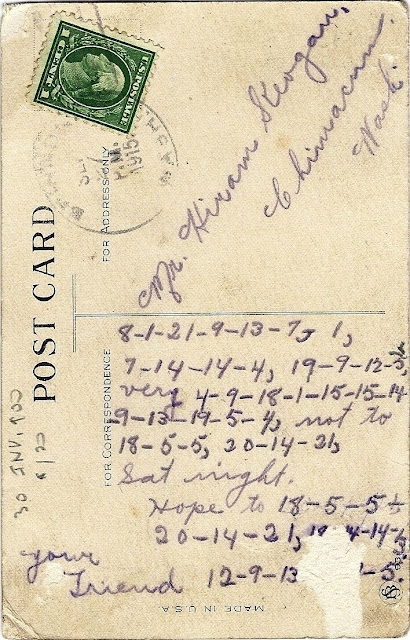 1 CENT 1
U.S. POSTAGE
P.M.
1915
WASH
Mr. Hiram Keogan,
Chimacum
Wash.
POST CARD
FOR ADDRESS ONLY
FOR CORRESPONDENCE
8-1-21-9-13-7, 1,
7-14-14-4, 19-9-12-5,
very 4-9-18-1-15-15-14
-9-13-19-5-4, not to
18-5-5, 20-14-21,
Sat night.
Hope to 18-5-5
20-14-21,
your
Friend 12-9-13
30 INV. 900
MADE IN U.S.A